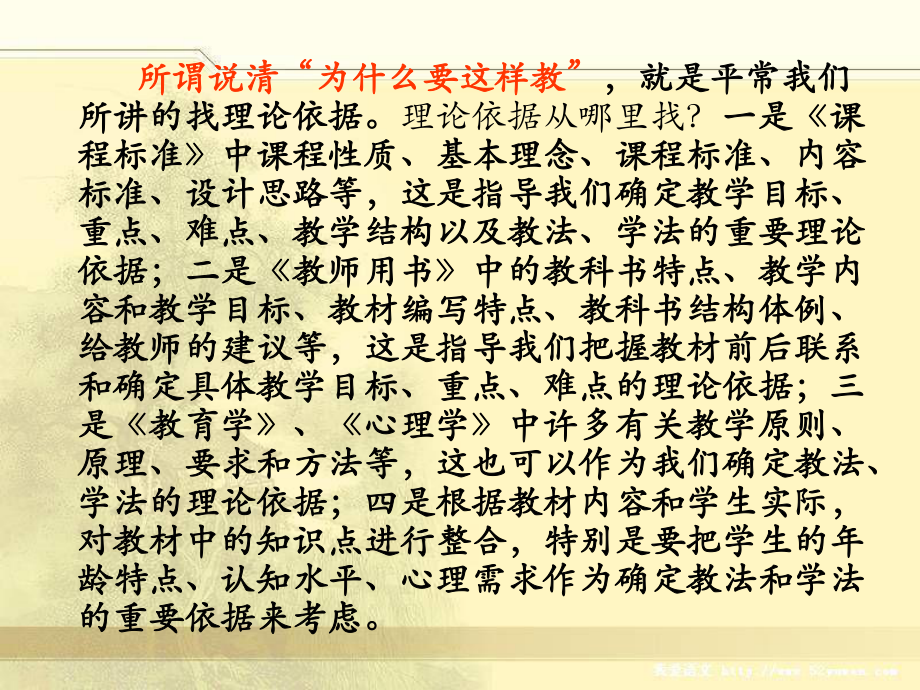 所谓说清“为什么要这样教”，就是平常我们
所讲的找理论依据。理论依据从哪里找？一是《课
程标准》中课程性质、基本理念、课程标准、内容
标准、设计思路等，这是指导我们确定教学目标、
重点、难点、教学结构以及教法、学法的重要理论
依据；二是《教师用书》中的教科书特点、教学内
容和教学目标、教材编写特点、教科书结构体例、
给教师的建议等，这是指导我们把握教材前后联系
和确定具体教学目标、重点、难点的理论依据；三
是《教育学》、《心理学》中许多有关教学原则、
原理、要求和方法等，这也可以作为我们确定教法、
学法的理论依据；四是根据教材内容和学生实际，
对教材中的知识点进行整合，特别是要把学生的年
龄特点、认知水平、心理需求作为确定教法和学法
的重要依据来考虑。
我爱语文 http://www.52yuwen.com